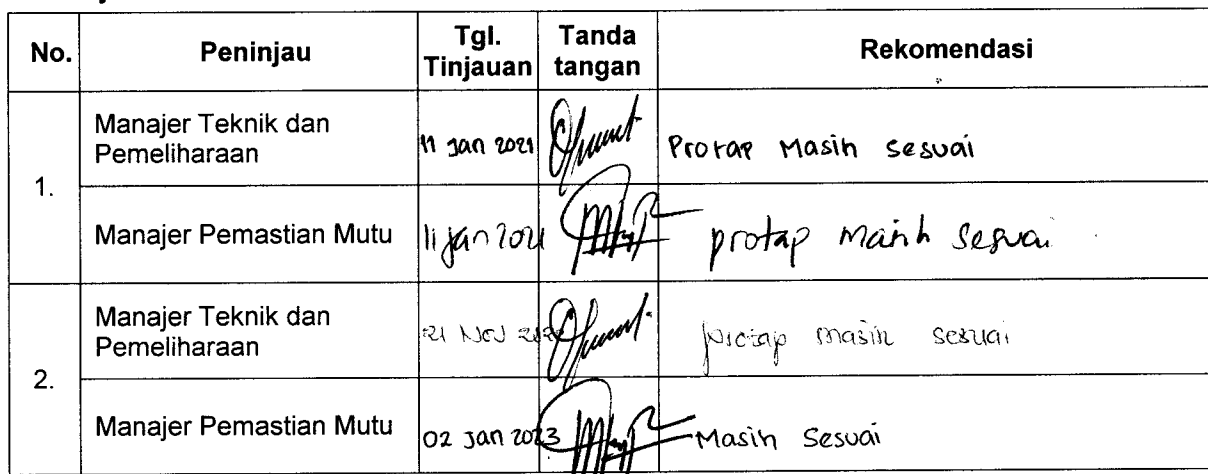 No. Peninjau Tgl. Tinjauan Tanda tangan Rekomendasi
1. Manajer Teknik dan Pemeliharaan 11 Jan 2021 Protap Masih sesuai
Manajer Pemastian Mutu 11 jan 2021 protap masih sesuai
2. Manajer Teknik dan Pemeliharaan 21 Nov protap masih sesuai
Manajer Pemastian Mutu 02 Jan 2023 Masih Sesuai